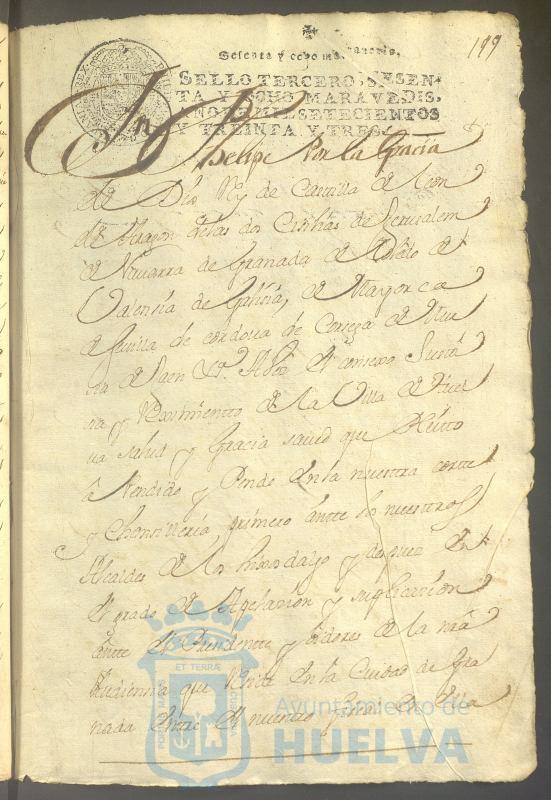 199
Sesenta y ocho maravedis.
SELLO TERCERO, SESEN-
TA Y OCHO MARAVEDIS,
AÑO DE MIL SETECIENTOS
Y TREINTA Y TRES.
Dn Phelipe Por la Gracia
de Dios Rey de Castilla de Leon
de Aragon de las dos Cicilias de Jerusalem
de Navarra de Granada de Toledo de
Valensia de Galisia, de Mayorca
de Sevilla de cordova de Corsega de Mur
de Jaen el consexo Justi
sia y Reximientto de la Villa de Huel
va salud y Gracia saved que Pleitto
â Pendido y Pende en la nuestra cortte
y Chansilleria, primero antte los nuestros
Alcaldes de los hixosdalgo y despues en
el grado de Apelasion y suplicasion
antte el Presidentte y oidores de la nra
Audiensia que Reside en la Ciudad de Gra
nada entre el nuestro fiscal
PORTUS MARIS
ET TERRÆ
CUSTODIA
Ayuntamiento de
HUELVA